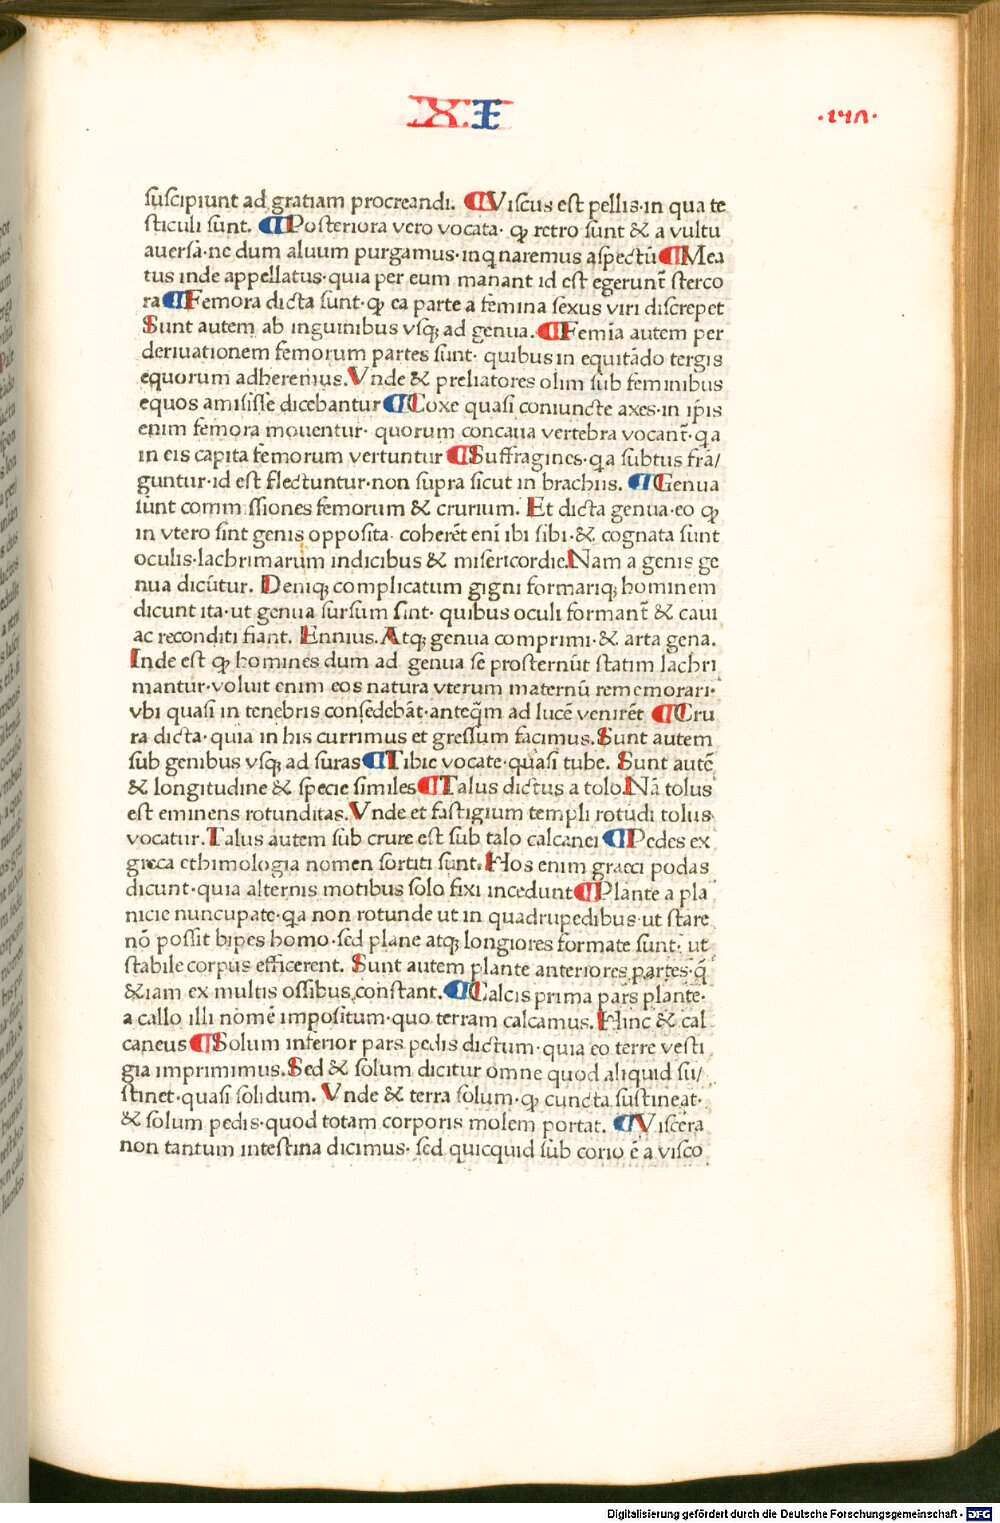 XI
·147·
suscipiunt ad gratiam procreandi. ¶Viscus est pellis·in qua te
sticuli sunt. ¶Posteriora vero vocata· ꝙ retro sunt & a vultu
auersa·ne dum aluum purgamus·inqnaremus aspectū¶Mea
tus inde appellatus·quia per eum manant id est egerunt̄ sterco
ra¶Femora dicta sunt·ꝙ ea parte a femina sexus viri discrepet
Sunt autem ab inguinibus vsqꝫ ad genua. ¶Femīa autem per
deriuationem femorum partes sunt· quibus in equitādo tergis
equorum adheremus.Vnde & preliatores olim sub feminibus
equos amisisse dicebantur¶Coxe quasi coniuncte axes·in ip̄is
enim femora mouentur· quorum concaua vertebra vocant̄·qa
in eis capita femorum vertuntur ¶Suffragines·qa subtus frā/
guntur·id est flectuntur·non supra sicut in brachiis. ¶Genua
sunt comm ssiones femorum & crurium. Et dicta genua·eo ꝙ
in vtero sint genis opposita· coherēt enī ibi sibi·& cognata sunt
oculis·lachrimarum indicibus & misericordie.Nam a genis ge
nua dicūtur. Deniqꝫ complicatum gigni formariqꝫ hominem
dicunt ita·ut genua sursum sint· quibus oculi formant̄ & caui
ac reconditi fiant. Ennius.Atqꝫ genua comprimi·& arta gena.
Inde est ꝙ homines dum ad genua se prosternūt statim lachri
mantur·voluit enim eos natura vterum maternū rememorari·
vbi quasi in tenebris consedebāt·anteq̄m ad lucē venirēt ¶Cru
ra dicta·quia in his currimus et gressum facimus.Sunt autem
sub genibus vsqꝫ ad suras¶Tibie vocate·quasi tube. Sunt autē
& longitudine & specie similes¶Talus dictus a tolo.Nā tolus
est eminens rotunditas.Vnde et fastigium templi rotūdi tolus
vocatur.Talus autem sub crure est sub talo calcanei¶Pedes ex
greca ethimologia nomen sortiti sunt.Hos enim graeci podas
dicunt·quia alternis motibus solo fixi incedunt¶Plante a pla
nicie nuncupate·qa non rotunde ut in quadrupedibus·ut stare
nō possit bipes homo·sed plane atqꝫ longiores formate sunt· ut
stabile corpus efficerent. Sunt autem plante anteriores partes·q̄
&iam ex multis ossibus constant.¶Calcis prima pars plante·
a callo illi nomē impositum·quo terram calcamus.Hinc & cal
caneus¶Solum inferior pars pedis dictum·quia eo terre vesti
gia imprimimus.Sed & solum dicitur omne quod aliquid su/
stinet·quasi solidum. Vnde & terra solum·ꝙ cuncta sustineat·
& solum pedis·quod totam corporis molem portat. ¶Viscera
non tantum intestina dicimus· sed quicquid sub corio ē a visco
Digitalisierung gefördert durch die Deutsche Forschungsgemeinschaft - DFG